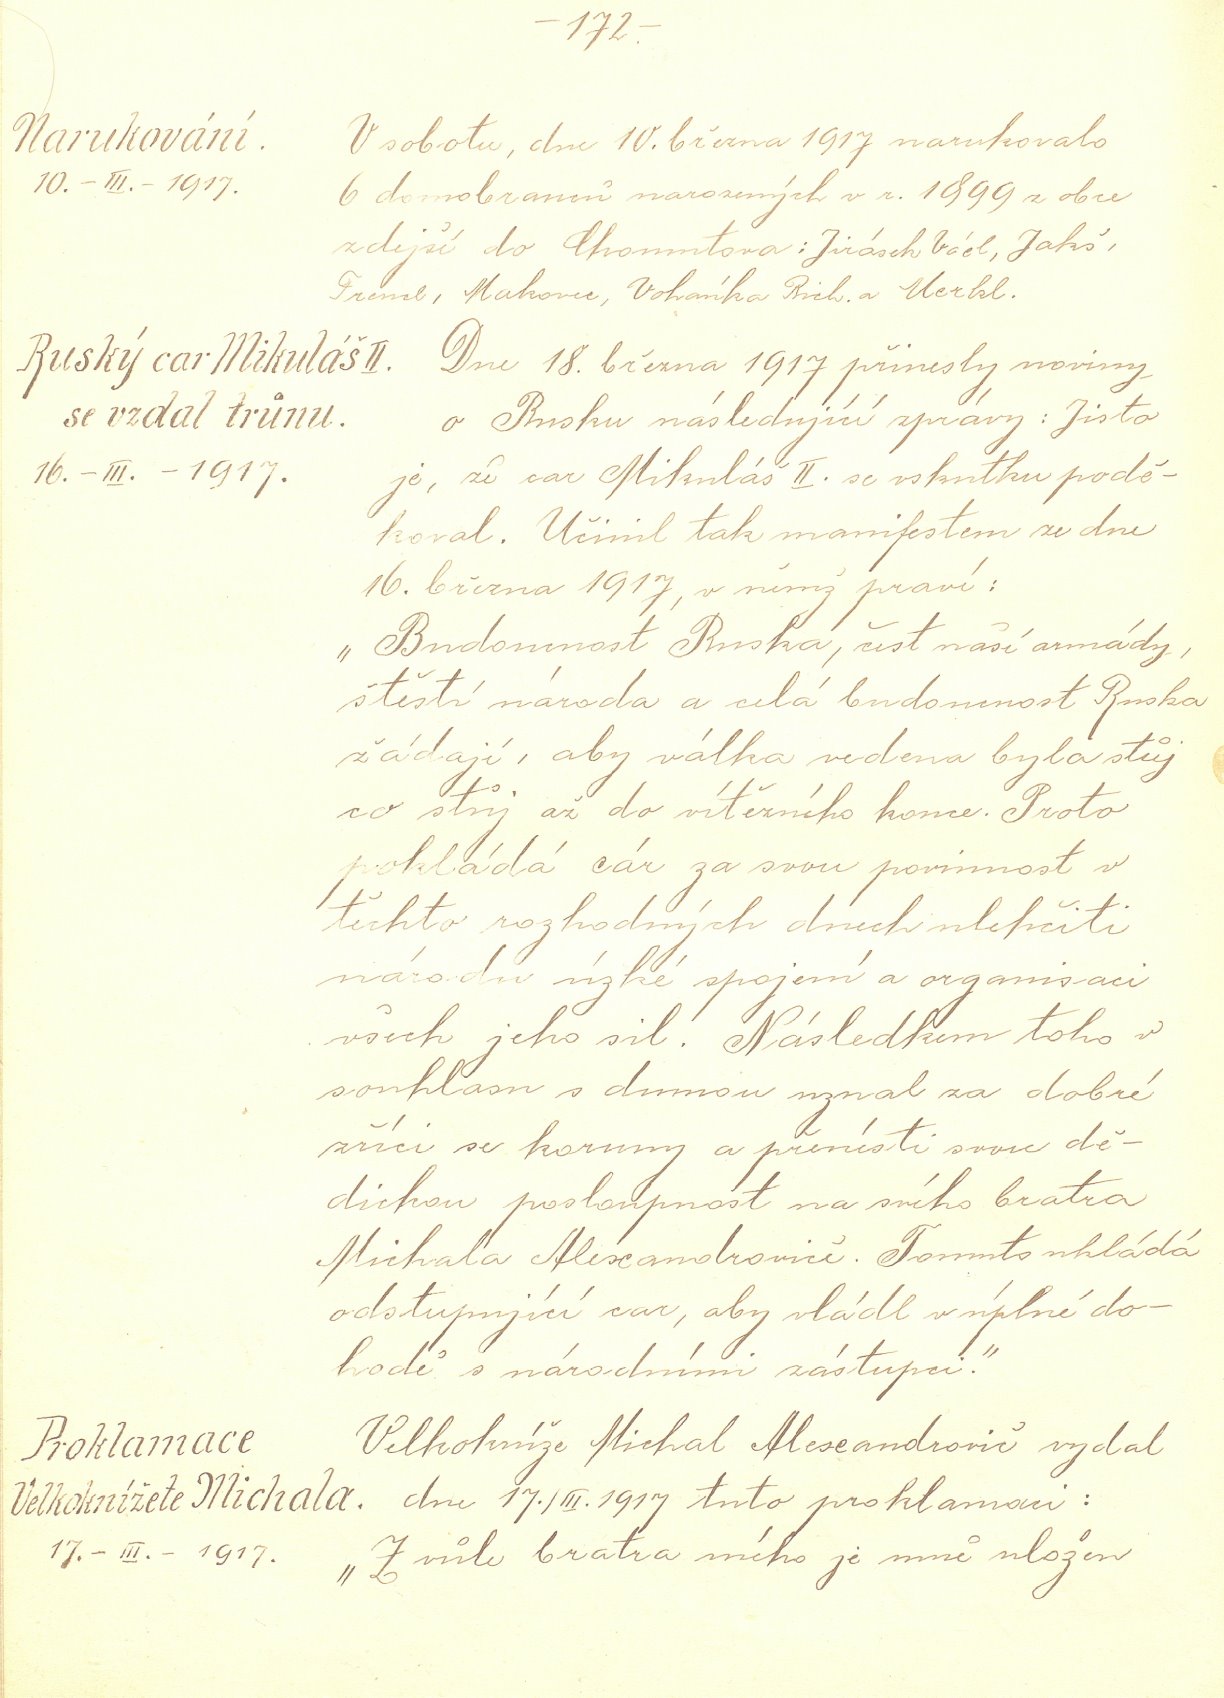 – 172 –
Narukování.
10. – III. – 1917.
V sobotu, dne 10. března 1917 narukovalo
6 domobranců narozených v r. 1899 z obce
zdejší do Chomutova: Jirásek Václ, Jakš,
Trencl, Makovec, Vohaňka Rich. a Merkl.
Ruský car Mikuláš II.
se vzdal trůnu.
16. – III. – 1917.
Dne 18. března 1917 přinesly noviny
o Rusku následující zprávy: Jisto
je, že car Mikuláš II. se vskutku podě-
koval. Učinil tak manifestem ze dne
16. března 1917, v němž praví:
„Budoucnost Ruska, čest naší armády,
štěstí národa a celá budoucnost Ruska
žádají, aby válka vedena byla stůj
co stůj až do vítězného konce. Proto
pokládá cár za svou povinnost v
těchto rozhodných dnech ulehčiti
národu úzké spojení a organisaci
všech jeho sil. Následkem toho v
souhlasu s dumou uznal za dobré
zříci se koruny a přenésti svou dě-
dickou posloupnost na svého bratra
Michala Alexandroviče. Tomuto ukládá
odstupující car, aby vládl v úplné do-
hodě s národními zástupci."
Proklamace
Velkoknížete Michala.
17. – III. – 1917.
Velkokníže Michal Alexandrovič vydal
dne 17./III. 1917 tuto proklamaci:
„Z vůle bratra mého je mně uložen